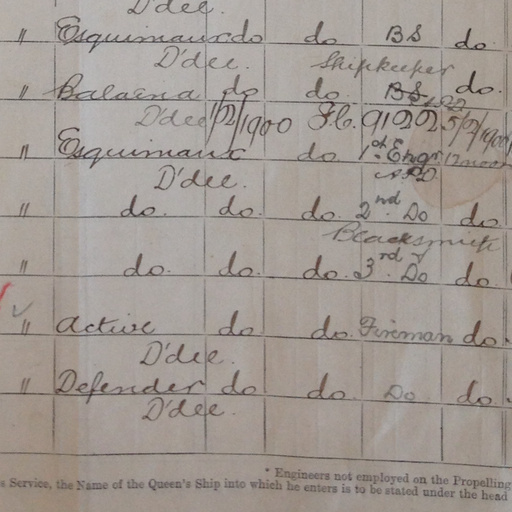 D'dee.
" Esquimaux do do BS do.
D'dee. Shipkeeper
" Balaena do do. BS do.
D'dee 1/2/1900 Flo. 91225/2/1900
" Esquimaux do 1st Engr 12 noon
D'dee.
" do. do. do. 2nd Do do
Blacksmith
" do. do. do. 3rd Do do.
" Active do do. Fireman do.
D'dee.
" Defender do do. Do do.
D'dee.
* Engineers not employed on the Propelling
s Service, the Name of the Queen's Ship into which he enters is to be stated under the head